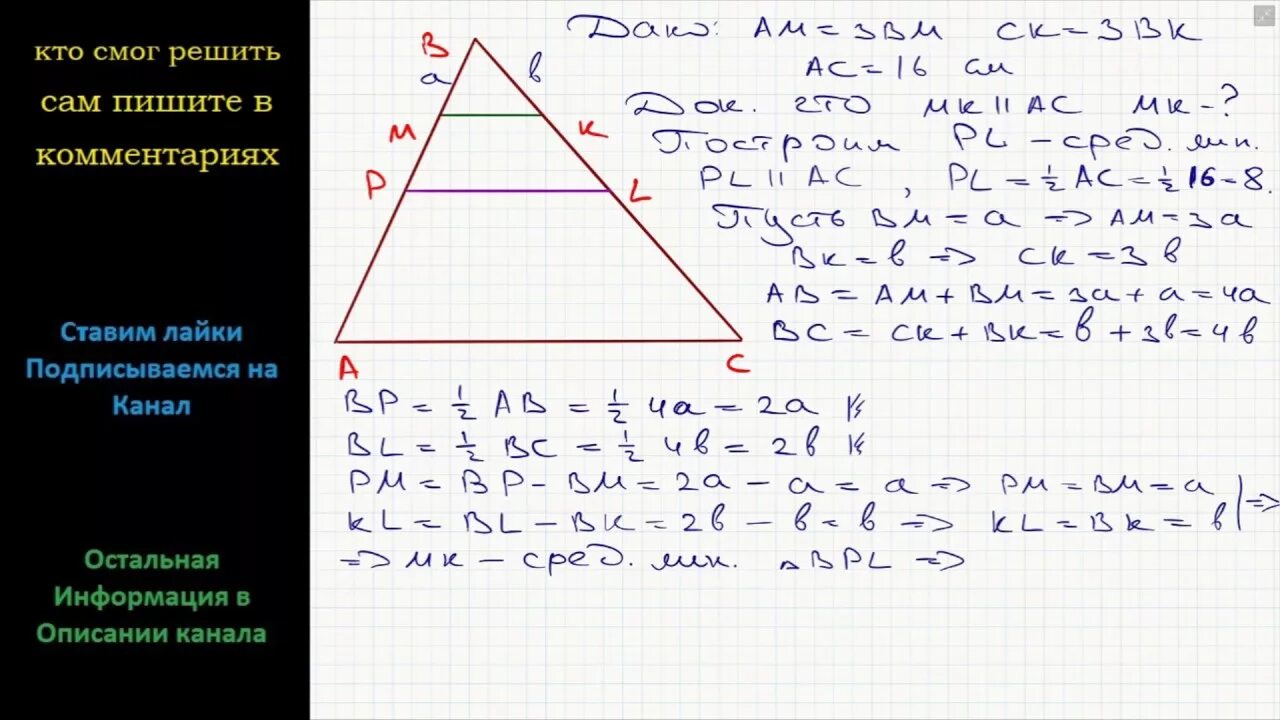 кто смог решить
сам пишите в
комментариях
Ставим лайки
Подписываемся на
Канал
Остальная
Информация в
Описании канала
B
a
в
M
K
P
L
A
C
Дано: AM = 3BM CK = 3BK
AC = 16 см
Док. что MK || AC MK - ?
Построим PL - сред. лин.
PL || AC , PL = 1/2 AC = 1/2 16 = 8.
Пусть BM = a => AM = 3a
BK = в => CK = 3в
AB = AM + BM = 3a + a = 4a
BC = CK + BK = в + 3в = 4в
BP = 1/2 AB = 1/2 4a = 2a
BL = 1/2 BC = 1/2 4в = 2в
PM = BP - BM = 2a - a = a => PM = BM = a
KL = BL - BK = 2в - в = в => KL = BK = в | =>
=> MK - сред. лин. △BPL =>